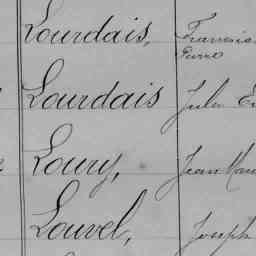 Lourdais, François
Pierre
Lourdais Jules
Loury, Jean
Louvel, Joseph